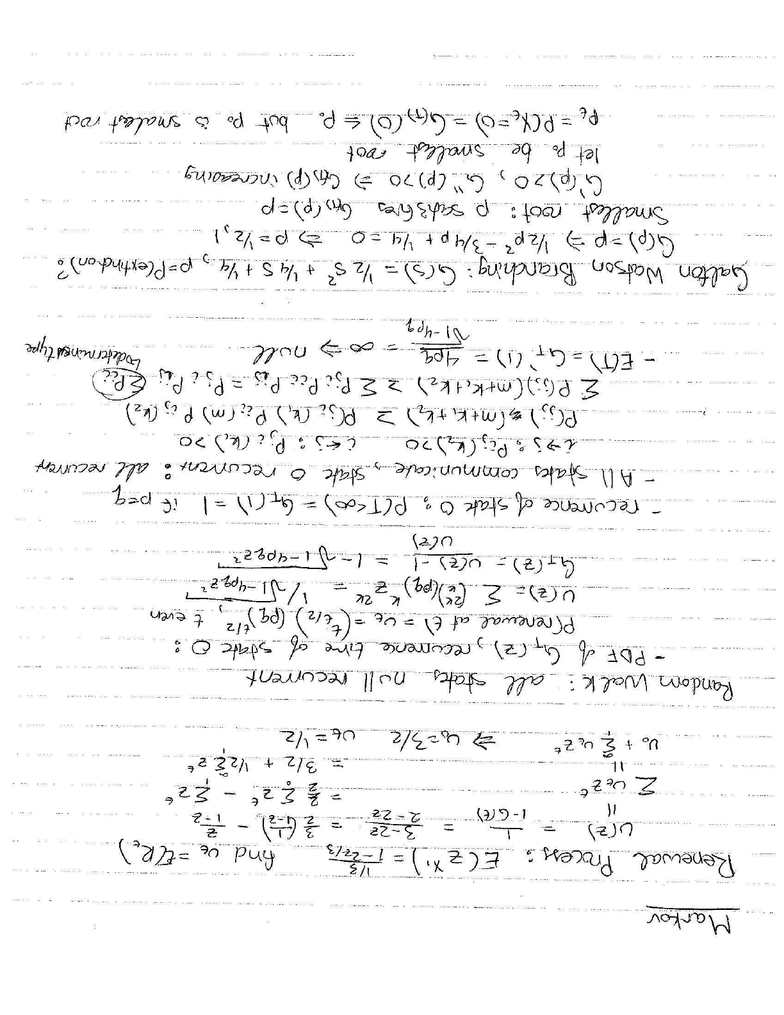 Markov
Renewal Process: E(z^X₁) = (1/3)/(1-2z/3) find u_t = E(R_t)
U(z) = 1/(1-G(z)) = (3-2z)/(2-2z) = 3/2 (1/(1-z)) - z/(1-z)
॥ = 3/2 Σ z^t - Σ z^t
Σ u_t z^t
॥ = 3/2 + 1/2 Σ z^t
u₀ + Σ u_t z^t ⇒ u₀ = 3/2 u_t = 1/2
Random Walk: all states null recurrent
- PDF of G_T(z), recurrence time of state 0:
P(renewal at t) = u_t = (t t/2) (pq)^(t/2), t even
U(z) = Σ (2k k) (pq)^k z^2k = 1/√(1-4pqz²)
G_T(z) = (U(z)-1)/U(z) = 1-√(1-4pqz²)
- recurrence of state 0: P(T<∞) = G_T(1) = 1 if p=q
- All states communicate, state 0 recurrent: all recurrent
i→j: P_ij(k₂)>0 i←j: P_ji(k₁)>0
P(jj)(m+k₁+k₂) ≥ P_ji(k₁) P_ii(m) P_ij(k₂)
Σ P(jj)(m+k₁+k₂) ≥ Σ P_ji P_ii P_ij = P_ji P_ij Σ P_ii
- E(T) = G_T'(1) = 4pq/√(1-4pq) = ∞ ⇒ null ↳determines type
Galton Watson Branching: G(s) = 1/2 s² + 1/4 s + 1/4, p = P(extinction)?
G(p) = p ⇒ 1/2 p² - 3/4 p + 1/4 = 0 ⇒ p = 1/2, 1
Smallest root: p satisfies G_(t)(p) = p
G'(p)>0, G''(p)>0 ⇒ G_(t)(p) increasing
let p₀ be smallest root
p_t = P(X_t=0) = G_(t)(0) ≤ p₀ but p₀ is smallest root